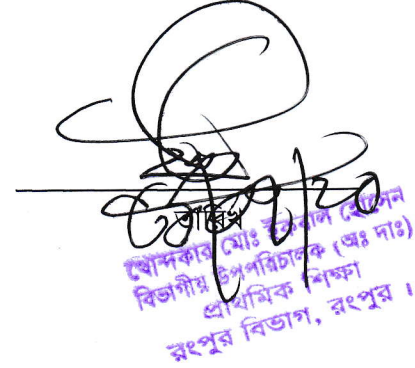 তারিখ
খোন্দকার মোঃ ইকবাল হোসেন
বিভাগীয় উপপরিচালক (অঃ দাঃ)
প্রাথমিক শিক্ষা
রংপুর বিভাগ, রংপুর ।